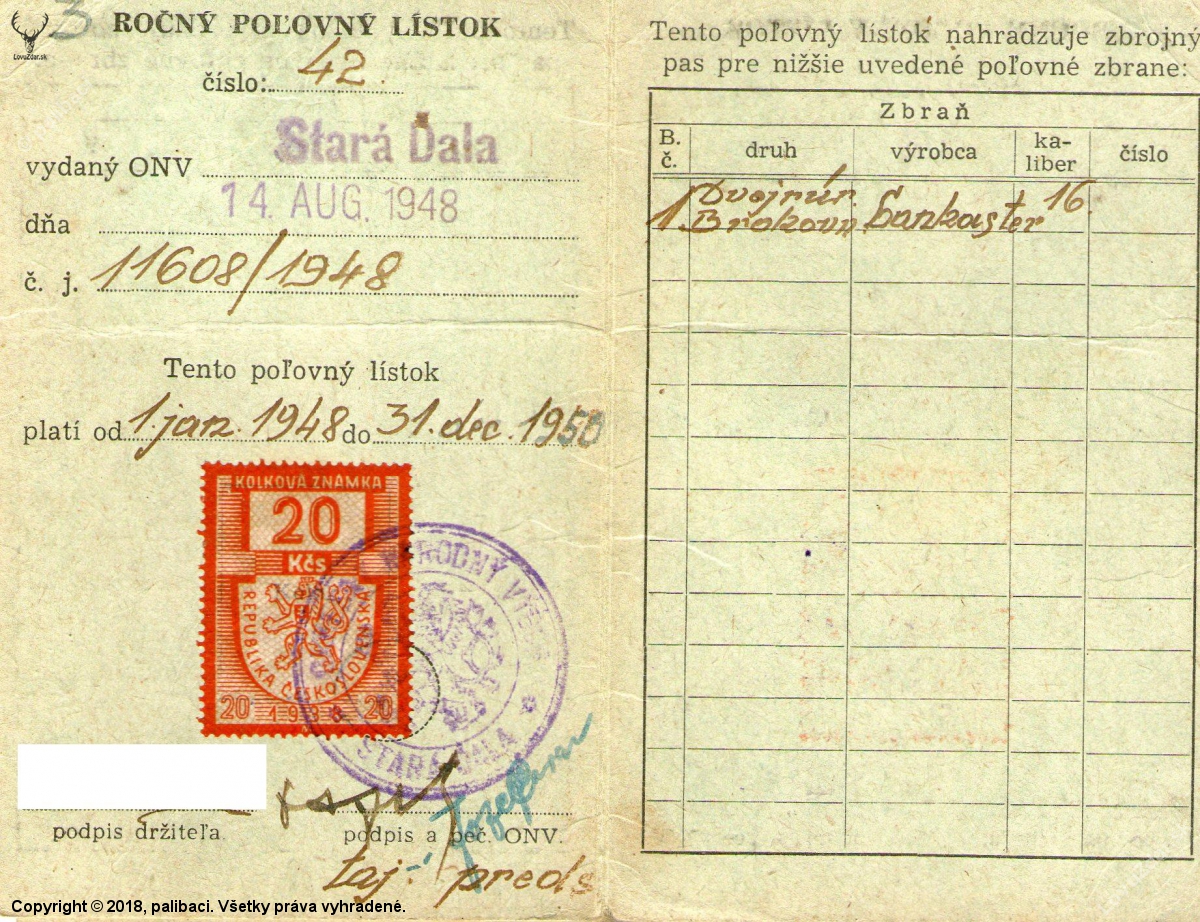 3
LovuZdar.sk
ROČNÝ POĽOVNÝ LÍSTOK
číslo: 42
vydaný ONV Stará Ďala
dňa 14. AUG. 1948
č. j. 11608/1948
Tento poľovný lístok
platí od 1. jan. 1948 do 31. dec. 1950
KOLKOVÁ ZNÁMKA
20
Kčs
REPUBLIKA ČESKOSLOVENSKÁ
20 20
NÁRODNÝ
STARÁ ĎALA
podpis držiteľa podpis a peč. ONV.
taj: preds
Tento poľovný lístok nahradzuje zbrojný
pas pre nižšie uvedené poľovné zbrane:
Zbraň
B. č. druh výrobca ka-liber číslo
1. Dvojrúr. Brokovn Lankaster 16
Copyright © 2018, palibaci. Všetky práva vyhradené.